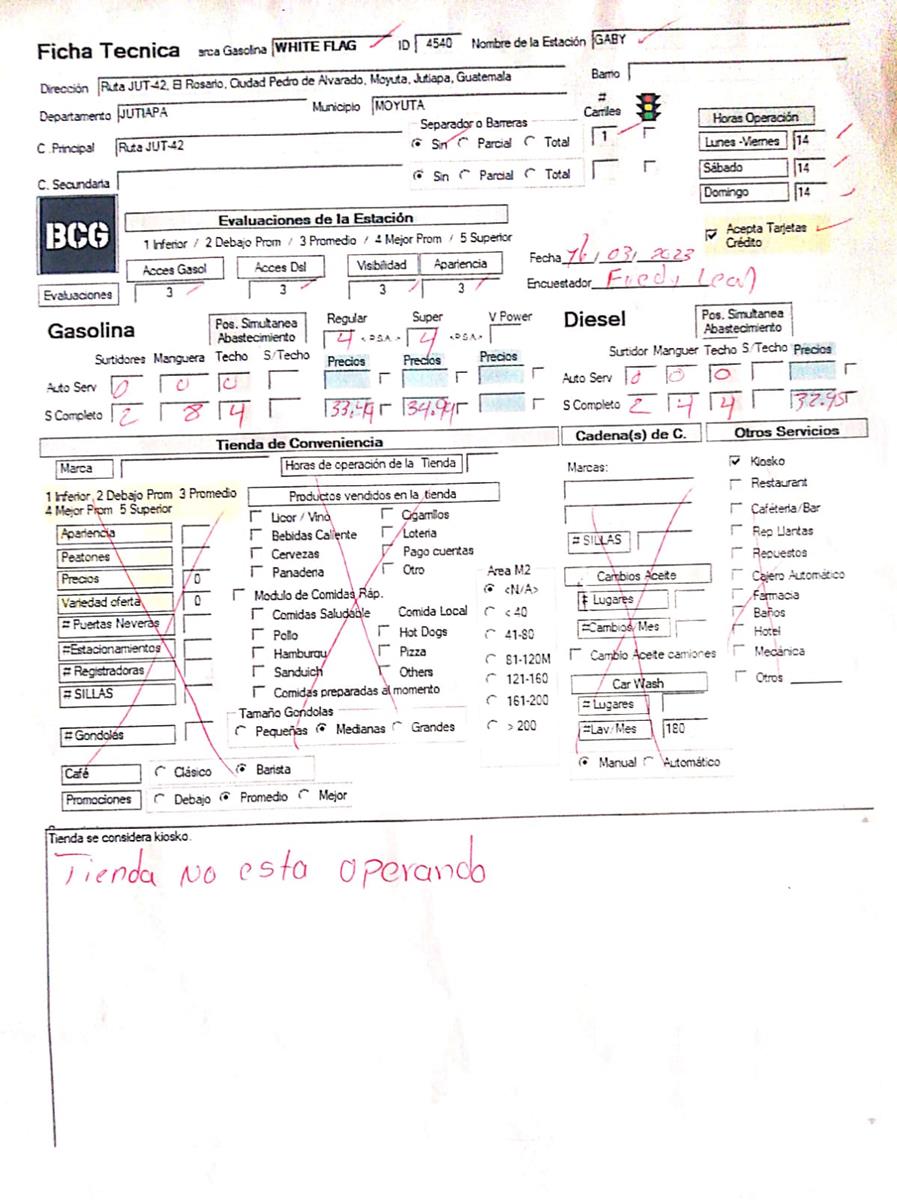 Ficha Tecnica arca Gasolina WHITE FLAG ID 4540 Nombre de la Estación GABY
Dirección Ruta JUT-42, El Rosario, Ciudad Pedro de Alvarado, Moyuta, Jutiapa, Guatemala Barrio
Departamento JUTIAPA Municipio MOYUTA # Carriles Horas Operación
C. Principal Ruta JUT-42 Separador o Barreras Sin Parcial Total 1 Lunes -Viernes 14
C. Secundaria Sin Parcial Total Sábado 14
Domingo 14
BCG
Evaluaciones de la Estación
Acepta Tarjetas Crédito
1 Inferior / 2 Debajo Prom / 3 Promedio / 4 Mejor Prom / 5 Superior
Fecha 16/03/2023
Acces Gasol Acces Dsl Visibilidad Apariencia
Encuestador Fredy Leal
Evaluaciones 3 3 3 3
Gasolina Pos. Simultanea Abastecimiento Regular Super V Power Diesel Pos. Simultanea Abastecimiento
4 <DSA> 4 <DSA>
Surtidores Manguera Techo S/Techo Precios Precios Precios Surtidor Manguer Techo S/Techo Precios
Auto Serv 0 0 0 Auto Serv 0 0 0
S Completo 2 8 4 33.49 34.94 S Completo 2 4 4 32.95
Tienda de Conveniencia Cadena(s) de C. Otros Servicios
Marca Horas de operación de la Tienda Marcas: Kiosko
1 Inferior 2 Debajo Prom 3 Promedio
4 Mejor Prom 5 Superior
Productos vendidos en la tienda
Restaurant
Apariencia Licor / Vino Cigarrillos Cafeteria/Bar
Peatones Bebidas Caliente Loteria # SILLAS Rep Llantas
Precios 0 Cervezas Pago cuentas Repuestos
Variedad oferta 0 Panaderia Otro Area M2 Cambios Aceite Cajero Automático
# Puertas Neveras Modulo de Comidas Ráp. <N/A> # Lugares Farmacia
#Estacionamientos Comidas Saludable Comida Local < 40 #Cambios/Mes Baños
# Registradoras Pollo Hot Dogs 41-80 Hotel
# SILLAS Hamburgu Pizza 81-120M Cambio Aceite camiones Mecánica
Sanduich Others 121-160 Car Wash Otros
Comidas preparadas al momento 161-200 # Lugares
# Gondolas Tamaño Gondolas Pequeñas Medianas Grandes > 200 #Lav/Mes 180
Café Clásico Barista Manual Automático
Promociones Debajo Promedio Mejor
Tienda se considera kiosko.
Tienda no esta operando